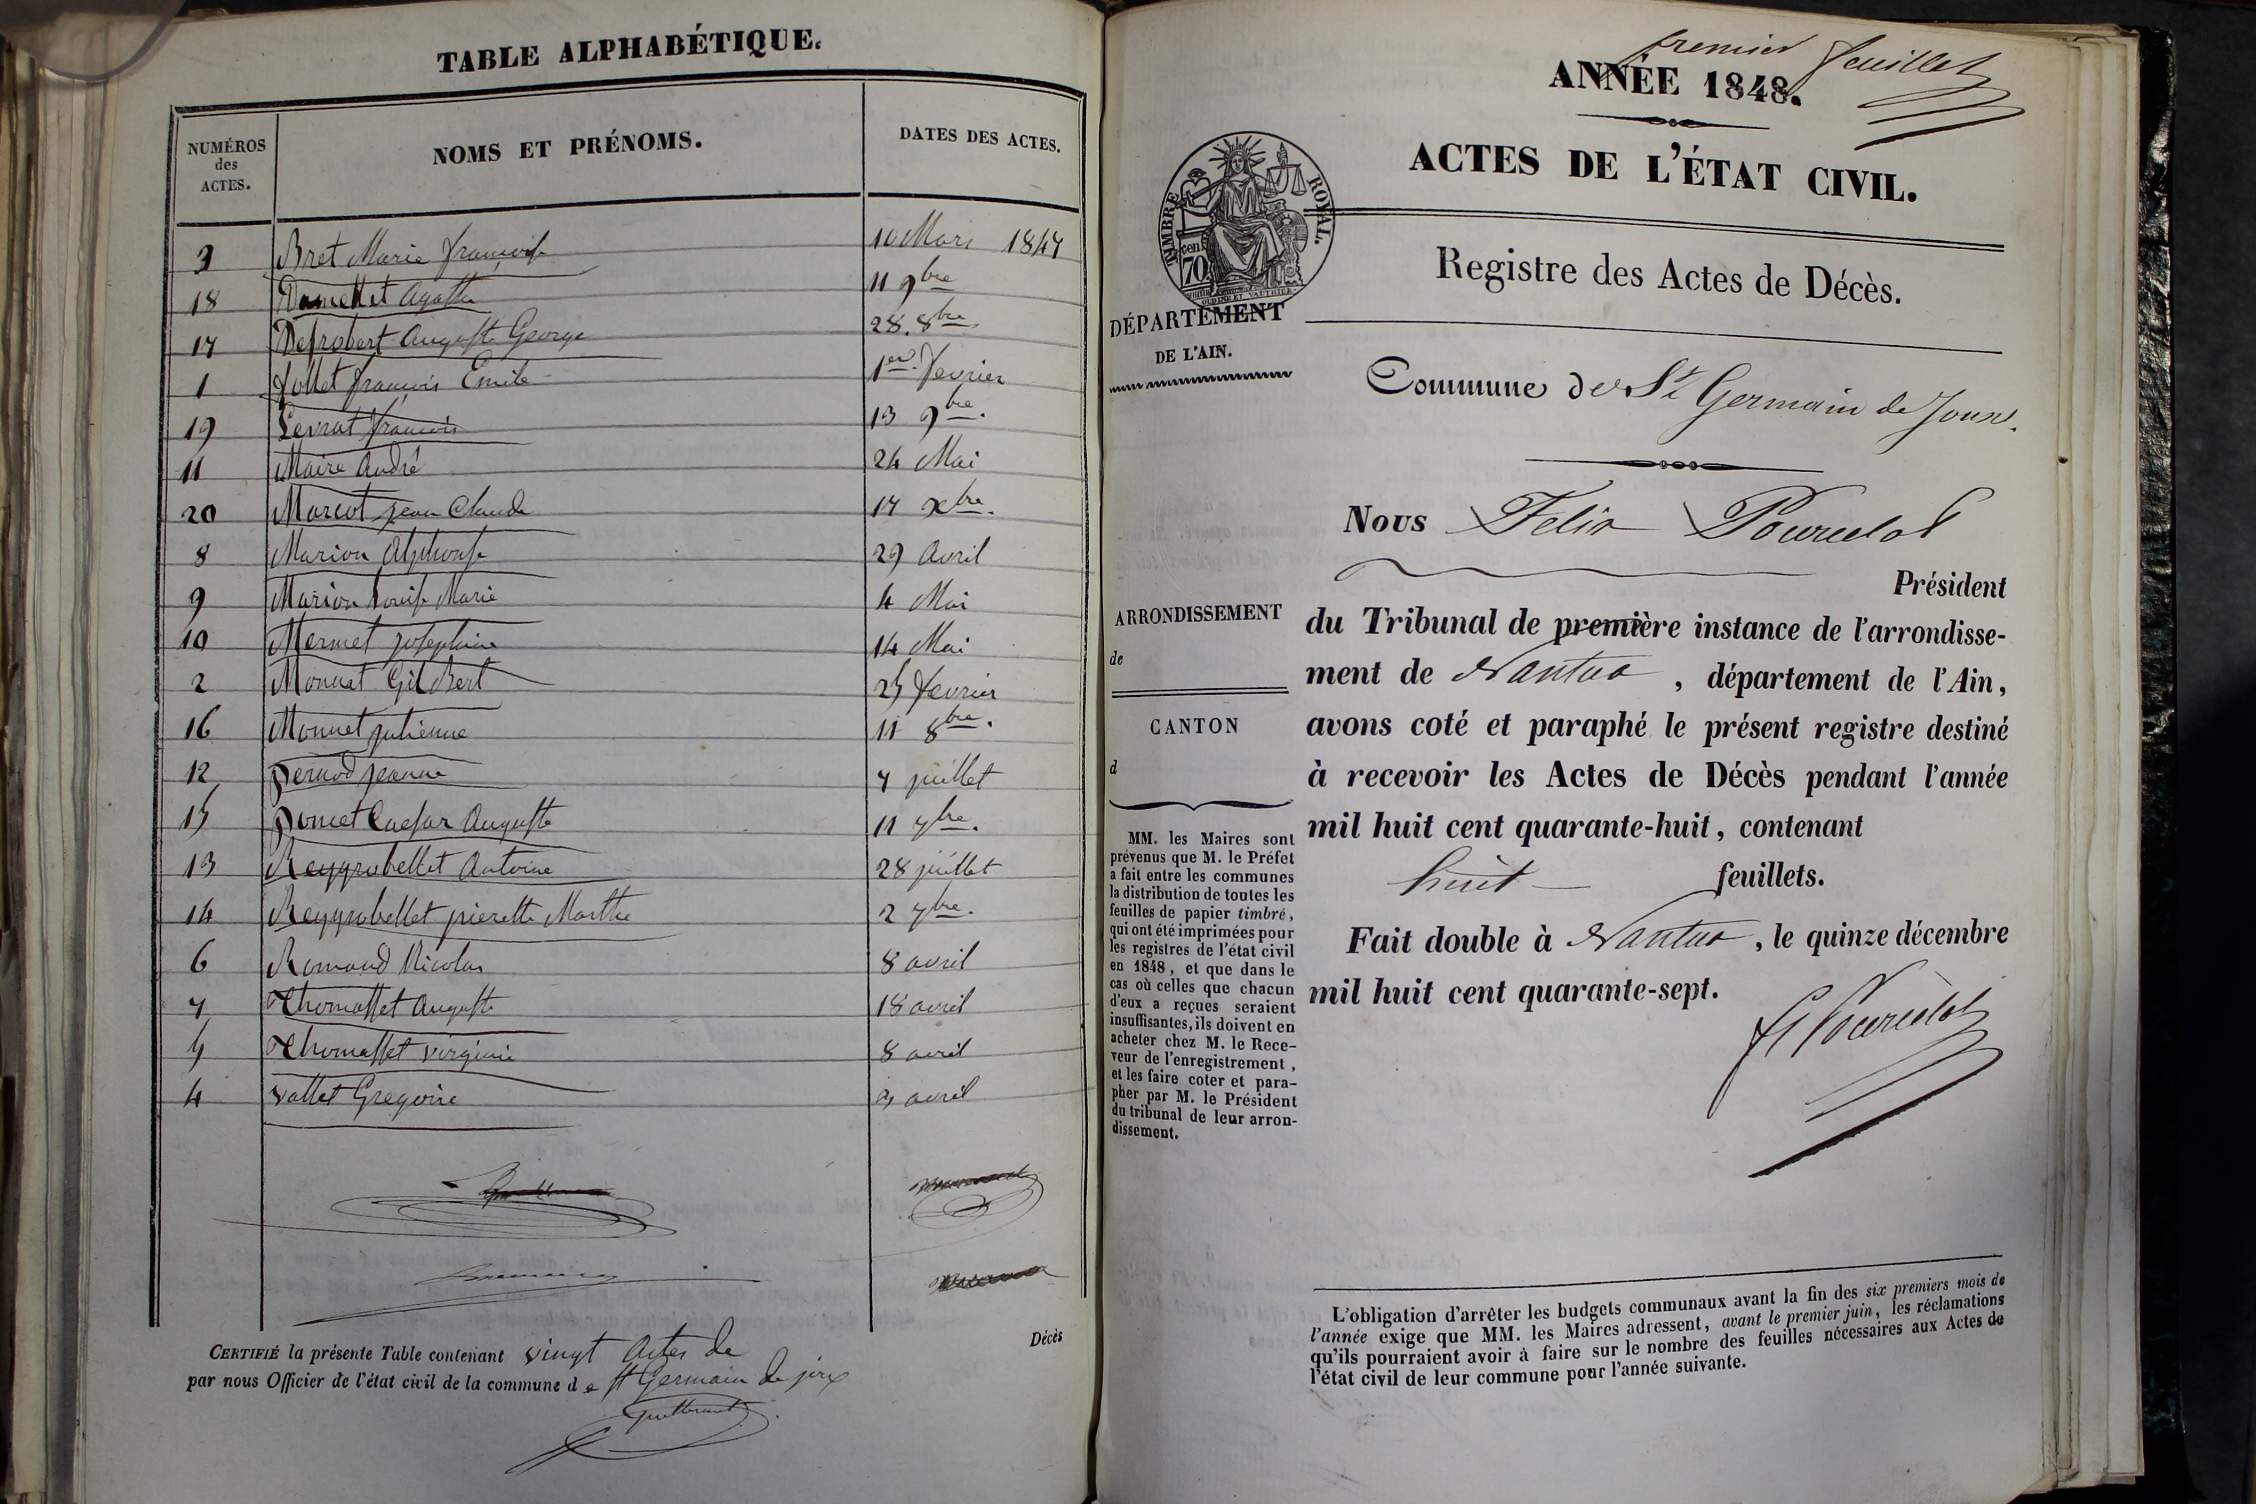 TABLE ALPHABÉTIQUE.
NUMÉROS des ACTES. NOMS ET PRÉNOMS. DATES DES ACTES.
3 Bret Marie françoise 10 Mars 1847
18 Agathe 11 9bre
17 Defrobert Auguste George 28. 8bre
1 Jollet françois Emile 1er fevrier
19 Levrat françois 13 9bre.
11 Maire André 24 Mai
20 Marcot jean Claude 17 Xbre.
8 Marion Alphonse 29 Avril
9 Marion Louise Marie 4 Mai
10 Mermet josephine 14 Mai
2 Monnet Gilbert 25 fevrier
16 Monnet julienne 11 8bre.
12 pernod jeanne 7 juillet
15 poncet Caesar Auguste 11 7bre.
13 Reygrobellet Antoine 28 juillet
14 Reygrobellet pierette Marthe 2 7bre.
6 Romand Nicolas 8 avril
7 Thomasset Auguste 18 avril
5 Thomasset virginie 8 avril
4 vallet Gregoire 3 avril
CERTIFIÉ la présente Table contenant vingt Actes de Décès
par nous Officier de l'état civil de la commune de St Germain de joux
premier feuillet
ANNÉE 1848.
ACTES DE L'ÉTAT CIVIL.
TIMBRE ROYAL.
70 cen.
Registre des Actes de Décès.
DÉPARTEMENT
DE L'AIN.
Commune de St Germain de Joux.
Nous Felix Pourcelot
Président
ARRONDISSEMENT
de
CANTON
d
du Tribunal de première instance de l'arrondisse-
ment de Nantua, département de l'Ain,
avons coté et paraphé le présent registre destiné
à recevoir les Actes de Décès pendant l'année
mil huit cent quarante-huit, contenant
huit feuillets.
Fait double à Nantua, le quinze décembre
mil huit cent quarante-sept.
f Pourcelot
MM. les Maires sont
prévenus que M. le Préfet
a fait entre les communes
la distribution de toutes les
feuilles de papier timbré,
qui ont été imprimées pour
les registres de l'état civil
en 1848, et que dans le
cas où celles que chacun
d'eux a reçues seraient
insuffisantes, ils doivent en
acheter chez M. le Rece-
veur de l'enregistrement,
et les faire coter et para-
pher par M. le Président
du tribunal de leur arron-
dissement.
L'obligation d'arrêter les budgets communaux avant la fin des six premiers mois de
l'année exige que MM. les Maires adressent, avant le premier juin, les réclamations
qu'ils pourraient avoir à faire sur le nombre des feuilles nécessaires aux Actes de
l'état civil de leur commune pour l'année suivante.